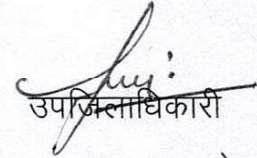 उपजिलाधिकारी